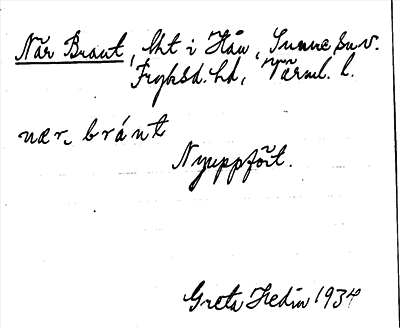 När Braut, lht i Hån, Sunne sn.
Fryksd. hd, Värml. l.
nær, bránt
Nyuppfört.
Greta Hedin 1934